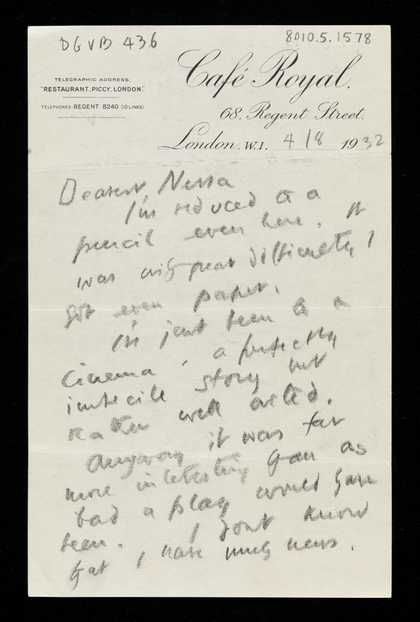 DGVB 436
8010.5.1578
TELEGRAPHIC ADDRESS,
"RESTAURANT, PICCY, LONDON."
TELEPHONES: REGENT 8240 (10 LINES)
Café Royal.
68, Regent Street.
London, W.1. 4/8 1932
Dearest Nessa
I'm reduced to a
pencil even here. It
was with great difficulty I
got even paper.
I've just been to a
cinema, a perfectly
imbecile story but
rather well acted.
Anyway it was far
more interesting than as
bad a play would have
been. I dont know
that I have much news.